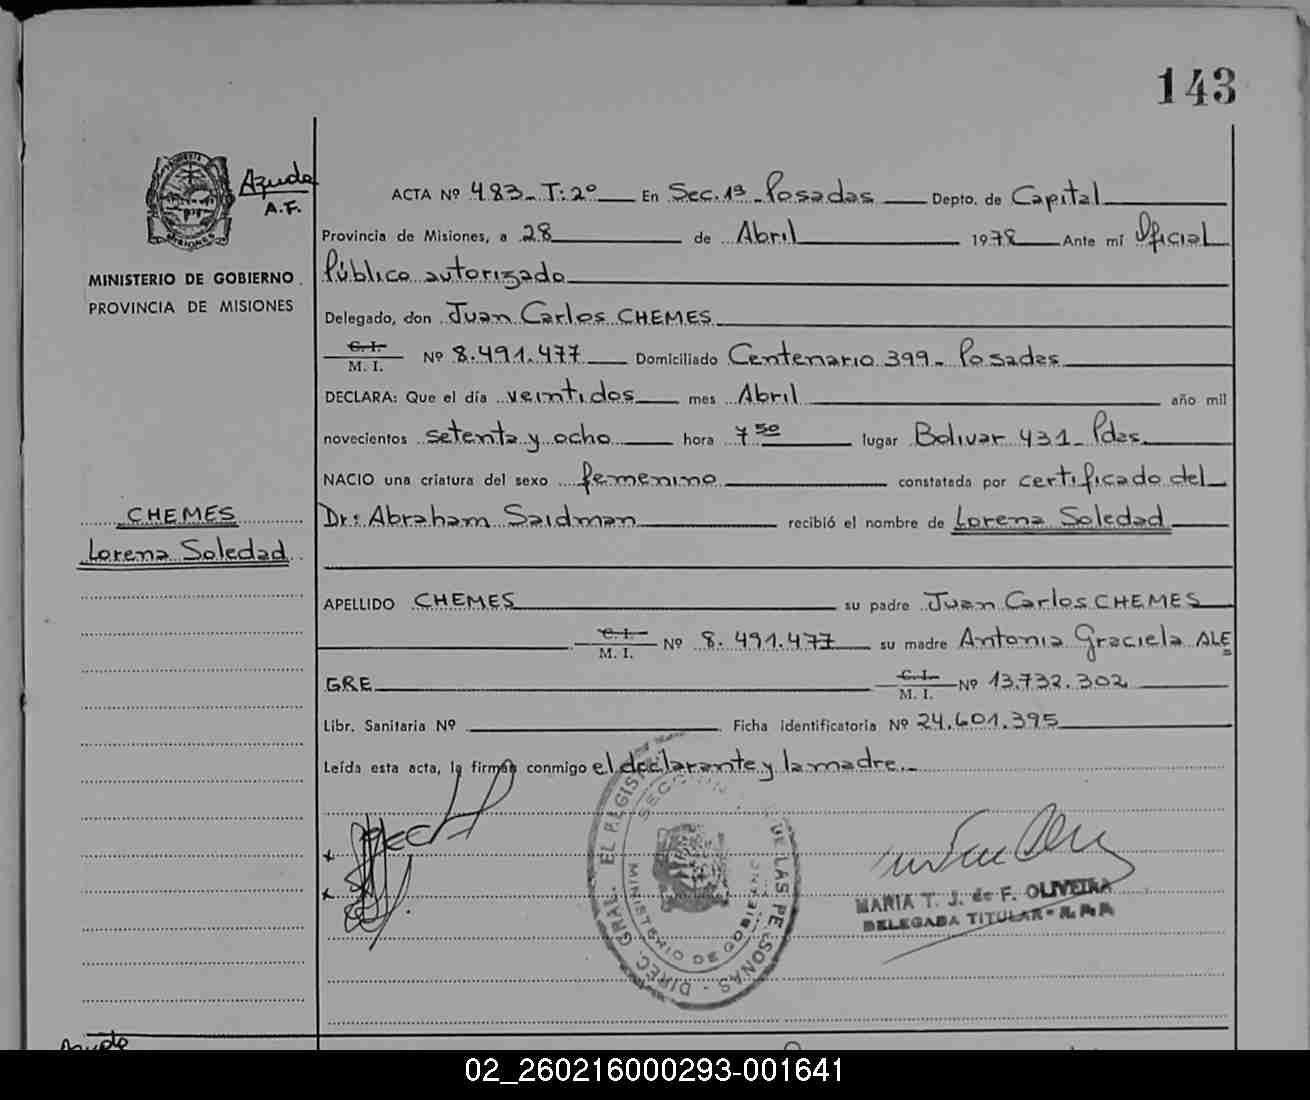 143
Ayuda
A.F.
MISIONES
MINISTERIO DE GOBIERNO
PROVINCIA DE MISIONES
ACTA Nº 483- T: 2º En Sec. 1ª - Posadas Depto. de Capital
Provincia de Misiones, a 28 de Abril 1978 Ante mí Oficial
Público autorizado
Delegado, don Juan Carlos CHEMES
C. I.
M. I. Nº 8.491.477 Domiciliado Centenario 399- Posadas
DECLARA: Que el día veintidos mes Abril año mil
novecientos setenta y ocho hora 7 50 lugar Bolivar 431- Pdas.
NACIO una criatura del sexo femenino constatada por certificado del
Dr: Abraham Saidman recibió el nombre de Lorena Soledad
CHEMES
Lorena Soledad
APELLIDO CHEMES su padre Juan Carlos CHEMES
C. I.
M. I. Nº 8.491.477 su madre Antonia Graciela ALE
GRE C. I.
M. I. Nº 13.732.302
Libr. Sanitaria Nº Ficha identificatoria Nº 24.601.395
Leída esta acta, la firman conmigo el declarante y la madre.-
DIREC. GRAL. EL REGIST DE LAS PERSONAS
MINISTERIO DE GOBIERNO
MARIA T. J. de F. OLIVEIRA
DELEGADA TITULAR
02_260216000293-001641